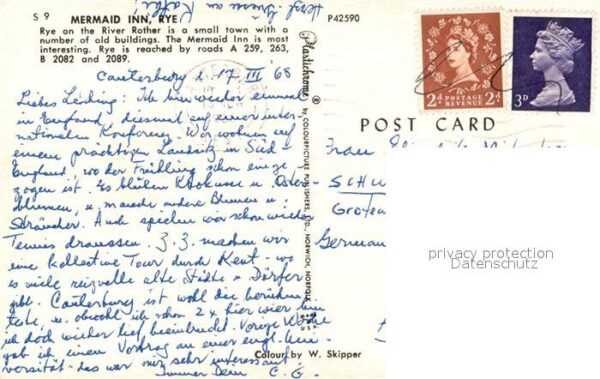 Herzl. Grüsse an Käthe!
S 9 MERMAID INN, RYE P42590
Rye on the River Rother is a small town with a
number of old buildings. The Mermaid Inn is most
interesting. Rye is reached by roads A 259, 263,
B 2082 and 2089.
Canterbury d. 17 III 68
Liebes : Ich bin wieder einmal
in England, diesmal auf einer inter-
nationalen Konferenz. Wir wohnen auf
einem prächtigen Landsitz in Süd-
England, wo der Frühling schon einge
zogen ist. Es blühen Krokusse u. Oster-
blumen, u. manche andere Blumen u.
Sträucher. Auch spielen wir schon wieder
Tennis draussen. Z. Z. machen wir
eine kollective Tour durch Kent - wo
es viele reizvolle alte Städte u. Dörfer
gibt. Canterbury ist wohl die berühm
teste, u. obwohl ich schon 2 x hier war bin
ich doch wieder tief beeindruckt. Vorige Woche
gab ich einen Vortrag an einer engl. Uni-
versität - das war mir sehr interessant
Immer Dein C. G.
Plastichrome ® by COLOURPICTURE PUBLISHERS, LTD., NORWICH, NORFOLK
Colour by W. Skipper
2d POSTAGE REVENUE 2d
3D
POST CARD
Frau
SCHU
Grofen
German
privacy protection
Datenschutz